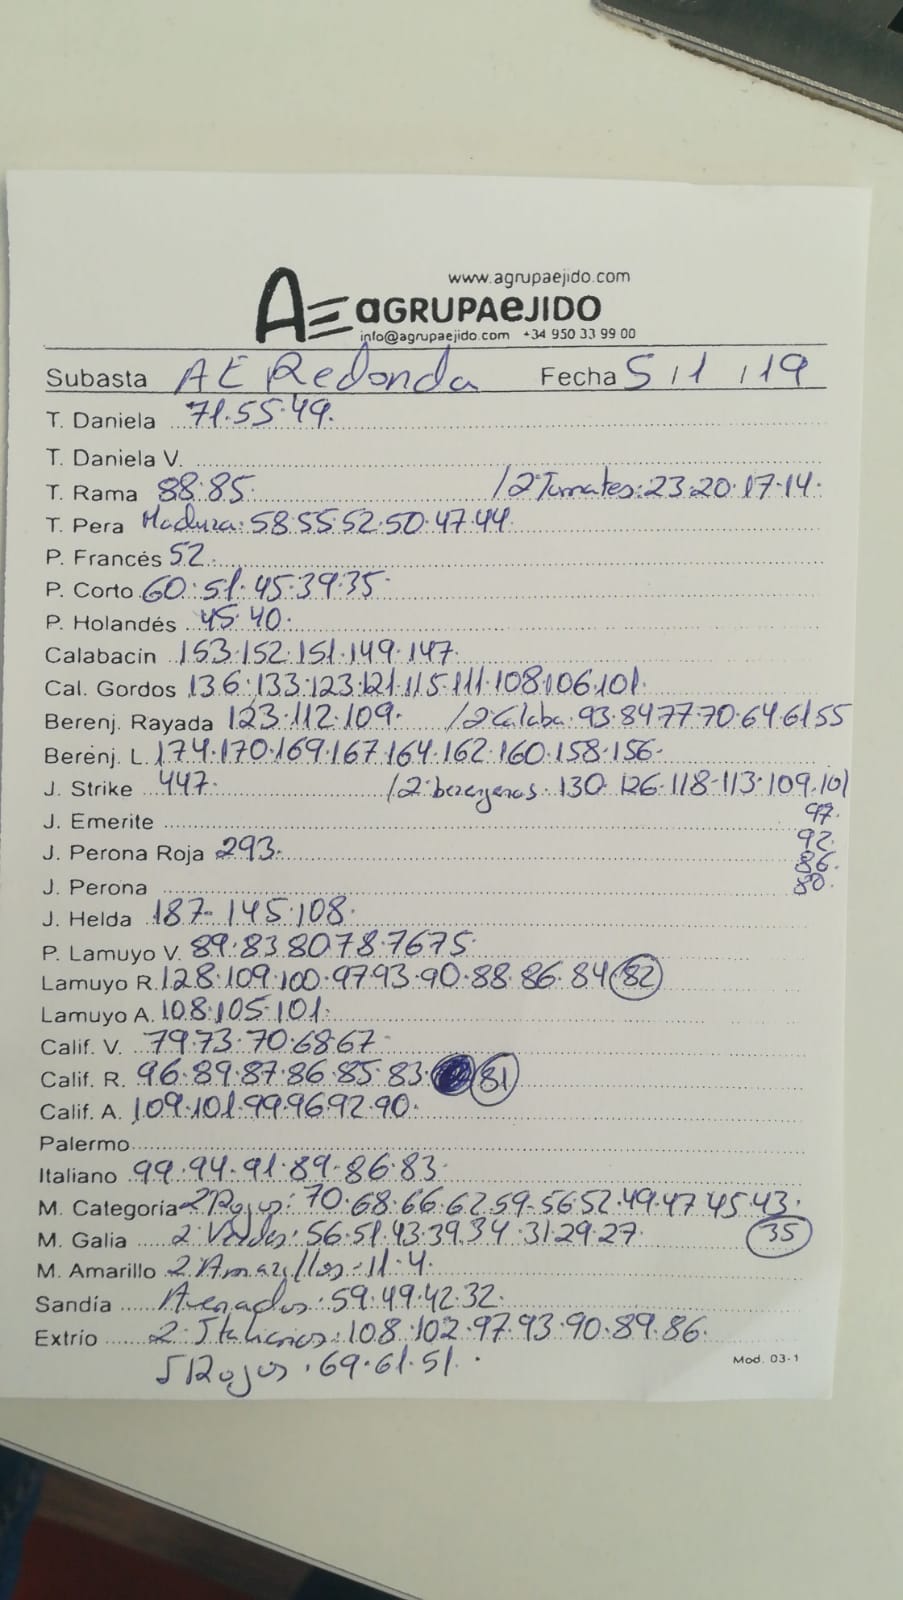 www.agrupaejido.com
AE AGRUPAEJIDO
info@agrupaejido.com +34 950 33 99 00
Subasta AE Redonda Fecha 5/1/19
T. Daniela 71.55.49.
T. Daniela V.
T. Rama 88.85. /2ªTomates:23.20.17.14.
T. Pera Madura:58.55.52.50.47.44.
P. Francés 52.
P. Corto 60.51.45.39.35.
P. Holandés 45.40.
Calabacín 153.152.151.149.147.
Cal. Gordos 136.133.123.121.115.111.108.106.101.
Berenj. Rayada 123.112.109. /2ªCalaba.93.84.77.70.64.61.55
Berenj. L. 174.170.169.167.164.162.160.158.156.
J. Strike 447. /2ªberenjenas.130.126.118.113.109.101
J. Emerite 97.
92.
J. Perona Roja 293. 86.
J. Perona 80.
J. Helda 187-145.108.
P. Lamuyo V. 89.83.80.78.76.75.
Lamuyo R. 128.109.100.97.93.90.88.86.84 82
Lamuyo A. 108.105.101.
Calif. V. 79.73.70.68.67.
Calif. R. 96.89.87.86.85.83. 81
Calif. A. 109.101.99.96.92.90.
Palermo
Italiano 99.94.91.89-86.83.
M. Categoría 2ªRojos:70.68.66.62.59-56.52.49.47.45.43.
M. Galia 2ªVerdes:56.51.43.39.34.31.29.27. 35
M. Amarillo 2ªAmarillos-11.4.
Sandía :59.49.42.32.
Extrío 2ªItalianos:108.102.97.93.90.89.86.
5 Rojos.69.61.51.
Mod. 03-1